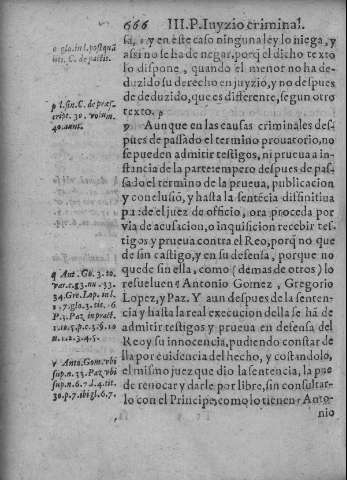 666 III.P. Iuyzio criminal.
sa, o y en este caso ninguna ley lo niega, y
assi no se ha de negar, porq̃ el dicho texto
lo dispone, quando el menor no ha de-
duzido su derecho en juyzio, y no despues
de deduzido, que es differente, segun otro
texto. p
Aunque en las causas criminales des-
pues de passado el termino prouatorio, no
se pueden admitir testigos, ni prueua a in-
stancia de la parte: empero despues de pas-
sado el termino de la prueua, publicacion
y conclusiõ, y hasta la sentẽcia diffinitiua
puede el juez de officio, ora proceda por
via de acusacion, o inquisicion recebir tes-
tigos y prueua contra el Reo, porq̃ no que
de sin castigo, y en su defensa, porque no
quede sin ella, como (de mas de otros) lo
resueluen q Antonio Gomez, Gregorio
Lopez, y Paz. Y aun despues de la senten-
cia y hasta la real execucion della se hã de
admitir testigos y prueua en defensa del
Reo y su innocencia, pudiendo constar de
lla por euidencia del hecho, y cõstãdolo,
el mismo juez que dio la sentencia, la pue
de reuocar y darle por libre, sin consultar-
lo con el Principe, como lo tienen r Anto-
nio
o glo. in l. postquã
liti. C. de pactis.
p l. sin. C. de præs-
cript. 30. vel. 40. anni.
q Ant. Go. 3. to.
var. c. 13. nu. 33.
34. Gre. Lop. in l.
P. 3. Paz. in pract.
r Anto. Gom. vbi
sup. n. 33. Paz vbi
sup. n. 6. 7. l. 4. tit.
30. p. 7. ibi gl. 6. 7.